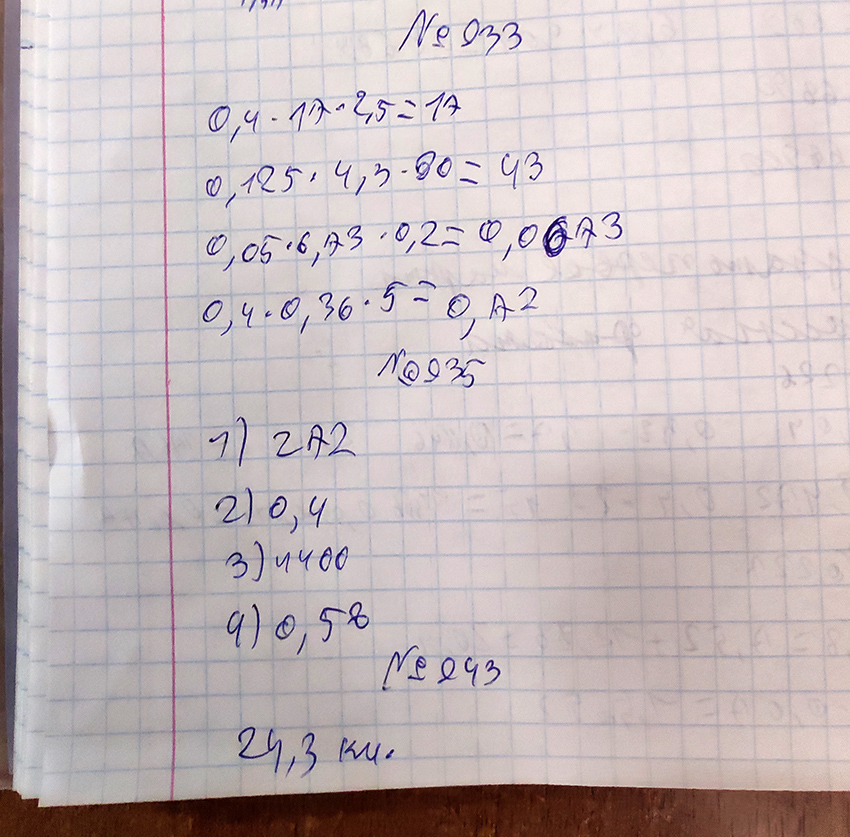 № 933
0,4 · 17 · 2,5 = 17
0,125 · 4,3 · 80 = 43
0,05 · 6,73 · 0,2 = 0,0673
0,4 · 0,36 · 5 = 0,72
№ 935
1) 272
2) 0,4
3) 1400
4) 0,58
№ 943
24,3 км.